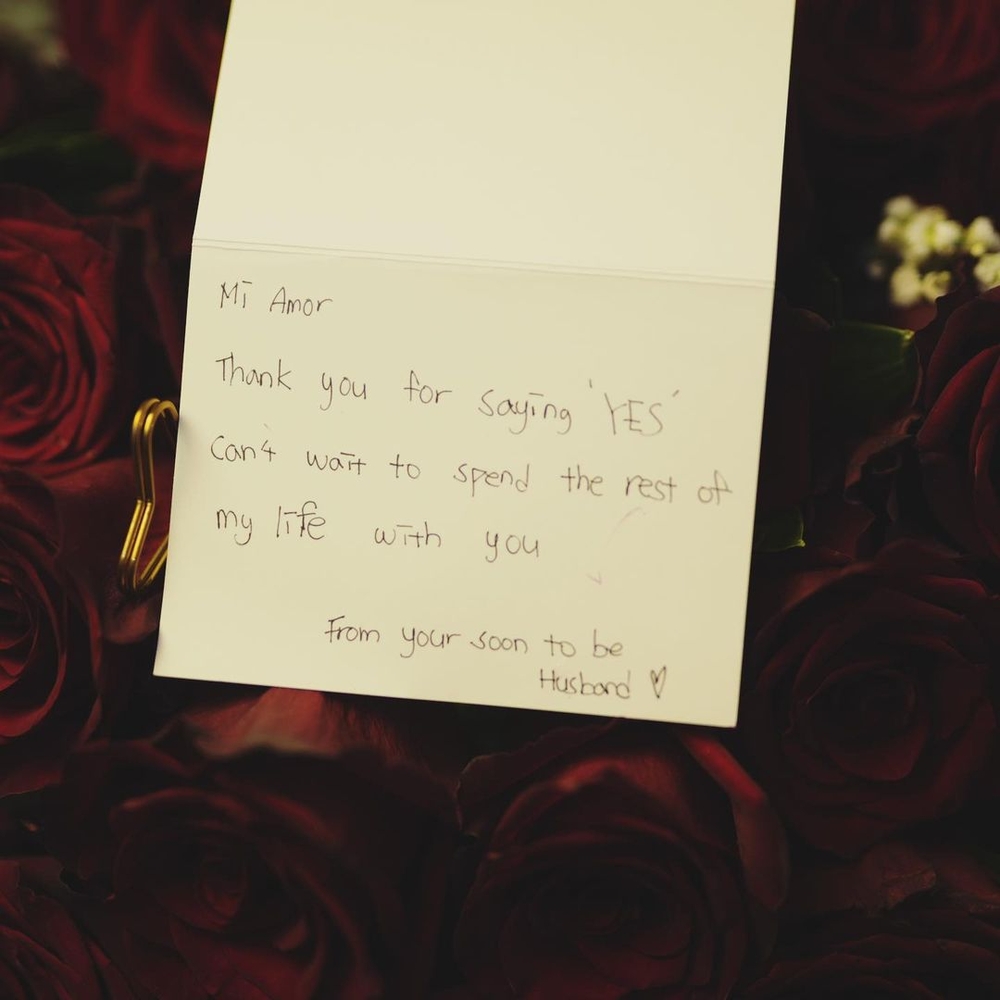 Mi Amor
Thank you for saying 'YES'
Can't wait to spend the rest of
my life with you
From your soon to be
Husband ♡